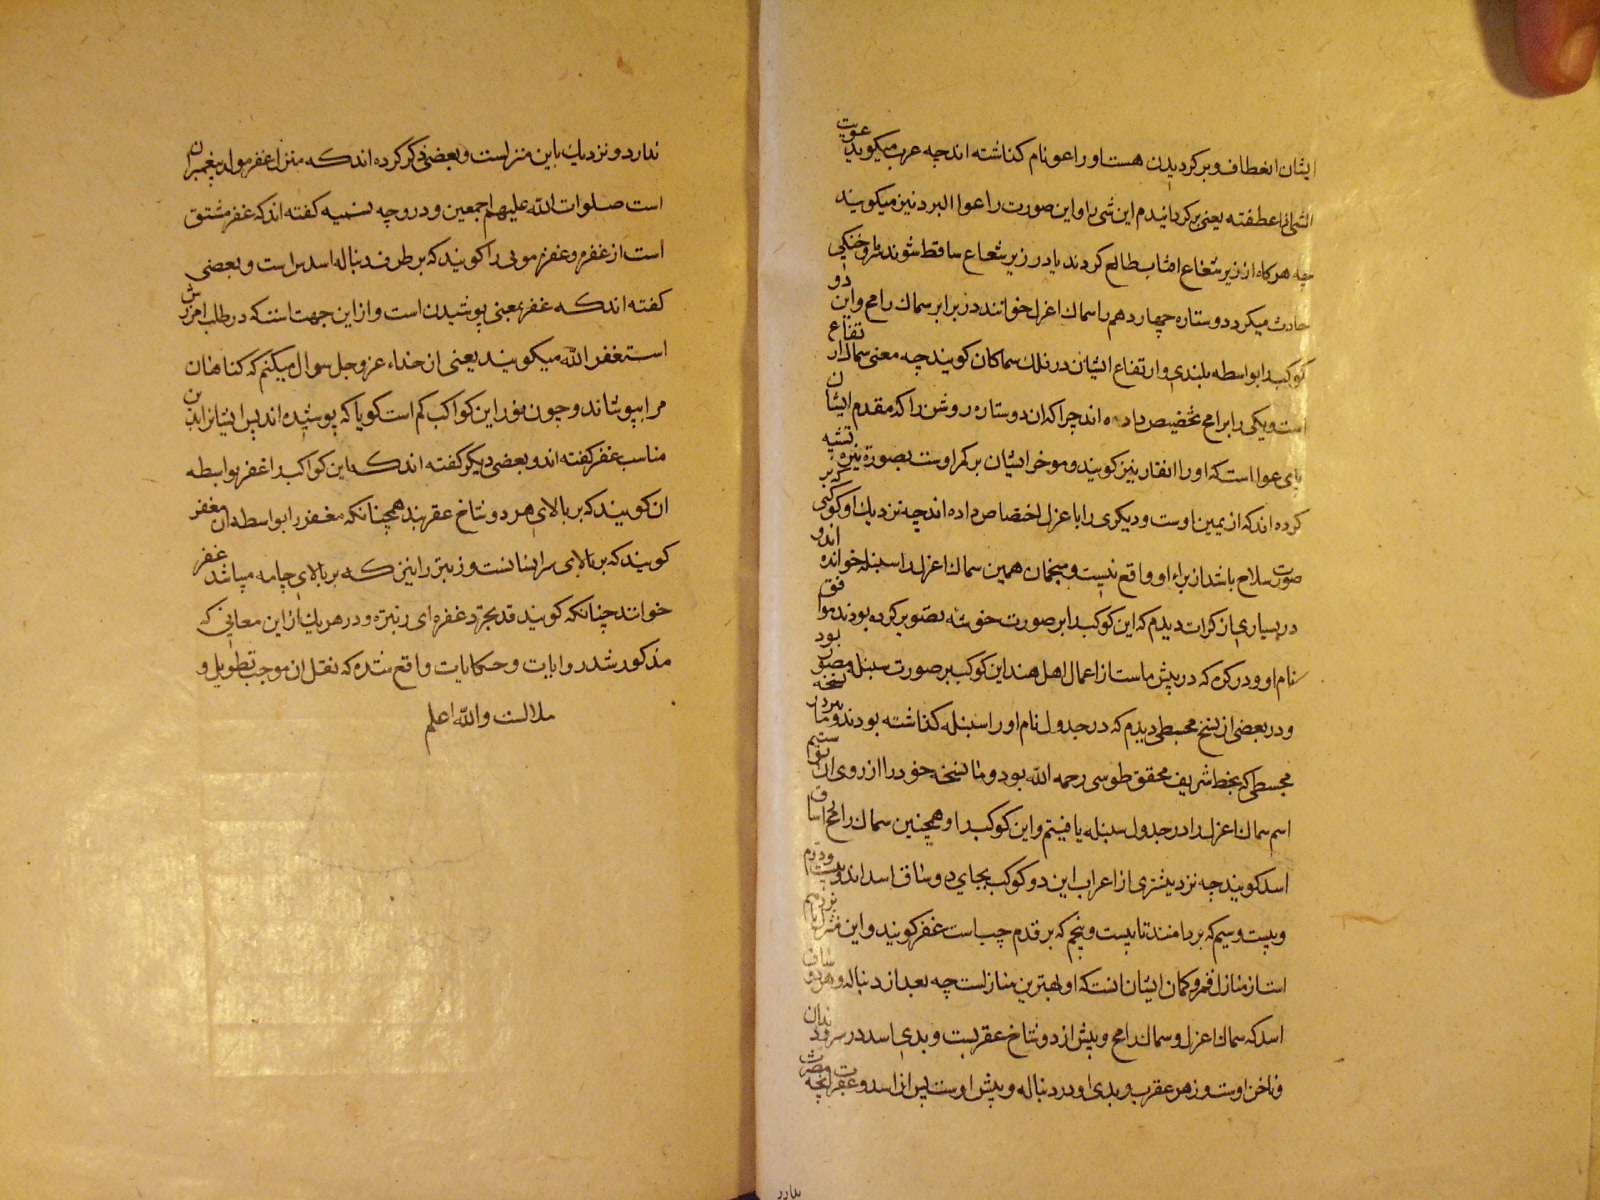 ایشان انعطاف و برکردیدن هست او را عوا نام کذاشته اند چه عرب میکوید عویت
الشی اذا عطفته یعنی برکردانیدم این شی را و این صورت را عوا البرد نیز میکویند
چه هرکاه از زیر شعاع افتاب طالع کردند یا در زیر شعاع ساقط شوند طروخنکی
حادث میکردد و ستاره چهاردهم را سماك اعزل خوانند در برابر سماك رامح و این دو
کوکب را بواسطه بلندی و ارتفاع ایشان در فلك سماکان کویند چه معنی سماك ارتفاع
است و یکی را برامح تخصیص داده اند چرا که ان دو ستاره روشن را که مقدم ایشان
پای عوا است که او را انقار نیز کویند و موخر ایشان بر کمر اوست بصورة نیزه تشبیه
کرده اند که از یمین اوست و دیکری را با عزل اختصاص داده اند چه نزدیك او کوکبی که بر
صورت سلاح باشد از براء او واقع نیست و منجمان همین سماك اعزل را سنبله خوانده اند و
در بسیاری از کرات دیدم که این کوکب را بر صورت خوشه تصویر کرده بودند موافق
نام او و در کره که در پیش ماست از اعمال اهل هند این کوکب بر صورت سنبله مصور بود
و در بعضی از نسخ مجسطی دیدم که در جدول نام او را سنبله کذاشته بودند و ما نسخه
مجسطی که بخط شریف محقق طوسی رحمه الله بود و ما نسخه خود را از روی ان
اسم سماك اعزل را در جدول سنبله یافتیم و این کوکب را و همچنین سماك رامح را ساق
اسد کویند چه نزد بیشتری از اعراب این دو کوکب بجای دو ساق اسد اند و بیست و دوم
و بیست و سیم که بر دامنند تا بیست و پنجم که بر قدم چپ است غفر کویند و این منزل
است از منازل قمر و کمان ایشان انست که او بهترین منازلست چه بعد از دنباله و هر دو ساق
اسد که سماك اعزل و سماك رامح و پیش از دو شاخ عقربست و بدی اسد در سر و دندان
و ناخن اوست و زهر عقرب و بدی او در دنباله و نیش اوست پس از اسد و عقرب انچه مضرت
ندارد
ندارد و نزدیك باین منزلست و بعضی ذکر کرده اند که منزل غفر مولد پیغمبران
است صلوات الله علیهم اجمعین و در وجه تسمیه کفته اند که غفر مشتق
است از غفره و غفره مویی را کویند که بر طرف دنباله اسد است و بعضی
کفته اند که غفر بمعنی پوشیدن است و از این جهت است که در طلب امرزش
استغفر الله میکویند یعنی از خداء عز و جل سوال میکنم که کناهان
مرا بپوشاند و چون نور این کواکب کم است کویا که پوشیده اند پس ایشانرا بدین
مناسب غفر کفته اند و بعضی دیکر کفته اند که این کواکب را غفر بواسطه
ان کویند که بر بالای هر دو شاخ عقربند همچنانکه مغفر را بواسطه ان مغفر
کویند که بر بالای سر انسانست و زیبر را نیز که بر بالای جامه میباشد غفر
خوانند چنانکه کویند قد تجرد غفره ای زئبره و در هر یك از این معانی که
مذکور شد روایات و حکایات واقع شده که نقل ان موجب تطویل و
ملالست والله اعلم